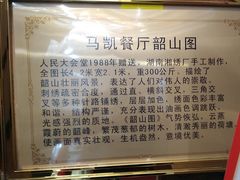 马凯餐厅韶山图
人民大会堂1988年赠送，湖南湘绣厂手工制作，
全图长4.2米宽2.1米，重300公斤，描绘了
韶山壮丽风景，表达了人们对伟人的崇敬。
刺绣疏密合度，通过直、横斜交叉、三角交
叉等多种针路铺绣，层层加色，绣面色彩丰富
和谐，结构严谨，充分表现出油画色彩跃动，
光感强烈的质地。《韶山图》气势恢弘，云蒸
霞蔚的韶峰，繁茂葱郁的树木，清澈秀丽的荷塘，
使画面真实壮观，生机盎然，意境优美。